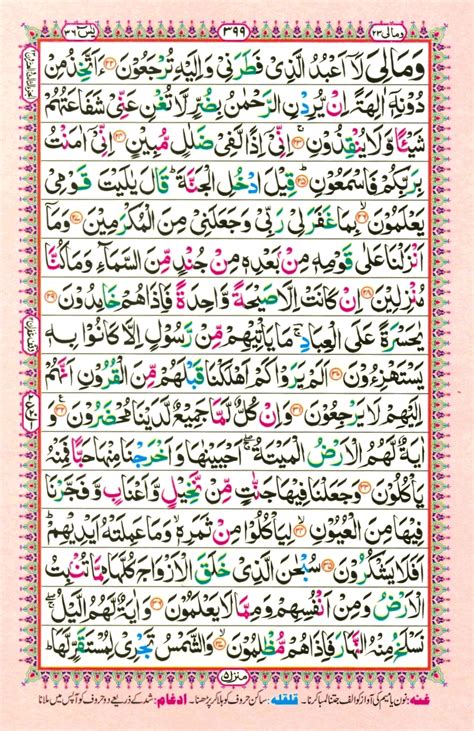 یٰس ٣٦
٣٩٩
ومالی ٢٣
وَمَالِیَ لَاۤ اَعْبُدُ الَّذِیْ فَطَرَنِیْ وَاِلَیْهِ تُرْجَعُوْنَ ﴿۲۲﴾ ءَاَتَّخِذُ مِنْ
دُوْنِهٖۤ اٰلِهَةً اِنْ یُّرِدْنِ الرَّحْمٰنُ بِضُرٍّ لَّا تُغْنِ عَنِّیْ شَفَاعَتُهُمْ
شَیْـًٔا وَّلَا یُنْقِذُوْنِ ﴿۲۳﴾ اِنِّیْۤ اِذًا لَّفِیْ ضَلٰلٍ مُّبِیْنٍ ﴿۲۴﴾ اِنِّیْۤ اٰمَنْتُ
بِرَبِّكُمْ فَاسْمَعُوْنِ ﴿۲۵﴾ قِیْلَ ادْخُلِ الْجَنَّةَ ؕ قَالَ یٰلَیْتَ قَوْمِیْ
یَعْلَمُوْنَ ﴿۲۶﴾ بِمَا غَفَرَ لِیْ رَبِّیْ وَجَعَلَنِیْ مِنَ الْمُكْرَمِیْنَ ﴿۲۷﴾ وَمَاۤ
اَنْزَلْنَا عَلٰی قَوْمِهٖ مِنْۢ بَعْدِهٖ مِنْ جُنْدٍ مِّنَ السَّمَآءِ وَمَا كُنَّا
مُنْزِلِیْنَ ﴿۲۸﴾ اِنْ كَانَتْ اِلَّا صَیْحَةً وَّاحِدَةً فَاِذَا هُمْ خٰمِدُوْنَ ﴿۲۹﴾
یٰحَسْرَةً عَلَی الْعِبَادِ ۚ مَا یَاْتِیْهِمْ مِّنْ رَّسُوْلٍ اِلَّا كَانُوْا بِهٖ
یَسْتَهْزِءُوْنَ ﴿۳۰﴾ اَلَمْ یَرَوْا كَمْ اَهْلَكْنَا قَبْلَهُمْ مِّنَ الْقُرُوْنِ اَنَّهُمْ
اِلَیْهِمْ لَا یَرْجِعُوْنَ ﴿۳۱﴾ وَاِنْ كُلٌّ لَّمَّا جَمِیْعٌ لَّدَیْنَا مُحْضَرُوْنَ ﴿۳۲﴾ وَ
اٰیَةٌ لَّهُمُ الْاَرْضُ الْمَیْتَةُ ۚ اَحْیَیْنٰهَا وَاَخْرَجْنَا مِنْهَا حَبًّا فَمِنْهُ
یَاْكُلُوْنَ ﴿۳۳﴾ وَجَعَلْنَا فِیْهَا جَنّٰتٍ مِّنْ نَّخِیْلٍ وَّاَعْنَابٍ وَّفَجَّرْنَا
فِیْهَا مِنَ الْعُیُوْنِ ﴿۳۴﴾ لِیَاْكُلُوْا مِنْ ثَمَرِهٖ ۙ وَمَا عَمِلَتْهُ اَیْدِیْهِمْ ؕ
اَفَلَا یَشْكُرُوْنَ ﴿۳۵﴾ سُبْحٰنَ الَّذِیْ خَلَقَ الْاَزْوَاجَ كُلَّهَا مِمَّا تُنْۢبِتُ
الْاَرْضُ وَمِنْ اَنْفُسِهِمْ وَمِمَّا لَا یَعْلَمُوْنَ ﴿۳۶﴾ وَاٰیَةٌ لَّهُمُ الَّیْلُ ۖۚ
نَسْلَخُ مِنْهُ النَّهَارَ فَاِذَا هُمْ مُّظْلِمُوْنَ ﴿۳۷﴾ وَالشَّمْسُ تَجْرِیْ لِمُسْتَقَرٍّ لَّهَا ؕ
منزل ۵
غنه: نون یا میم کی آواز کو الف جتنا لمبا کرنا۔ قلقله: ساکن حروف کو ہلا کر پڑھنا۔ ادغام: شد کے ذریعے دو حروف کو آپس میں ملانا